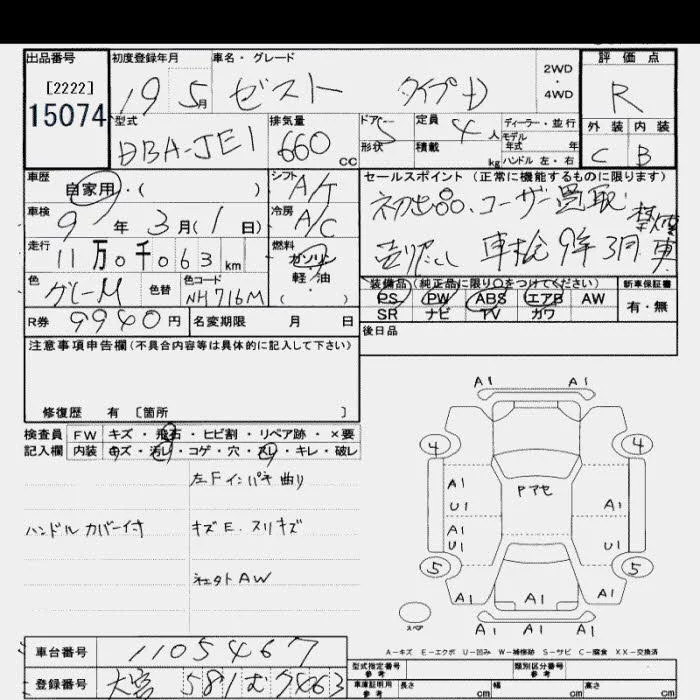 出品番号 初度登録年月 車名・グレード 評価点
[2222]
15074
19 5月 ゼスト タイプD 2WD・4WD R
型式 排気量 ドアー 定員 ディーラー・並行 外装 内装
DBA-JE1 660cc 5 4人 モデル年式 年 C B
形状 積載 kg ハンドル 左・右
車歴 シフト セールスポイント(正常に機能するものに限ります)
自家用・( ) A/T
初出品、ユーザー買取 禁煙車
車検 冷房
9年3月(1日) A/C
売り切り 車検9年3月
走行 燃料
11万0千063km ガソリン・軽・油 ( )
装備品(純正品に限り○をつけてください) 新車保証書
色 色替 色コード
グレーM NH716M
PS PW ABS エアB AW 有・無
SR ナビ TV カワ
R券 9940円 名変期限 月 日
後日品
注意事項申告欄(不具合内容等は具体的に記入して下さい)
修復歴 有 〔箇所 〕
検査員 FW キズ・飛石・ヒビ割・リペア跡・×要
記入欄 内装 キズ・汚レ・コゲ・穴・スレ・キレ・破レ
左Fインパネ曲り
ハンドルカバー付 キズE.スリキズ
社外AW
A1 A1
4 4
A1 Pアセ A1
U1
A1
U1 U1
5 5
A1 A1 A1
A1 A1 A1
スペア
A-キズ E-エクボ U-凹み W-補修跡 S-サビ C-腐食 XX-交換済
車台番号 1105467
型式指定番号 参考 類別区分番号 参考
登録番号 大宮 581 む 7463
車庫証明用 参考 長さ cm 幅 cm 高さ cm